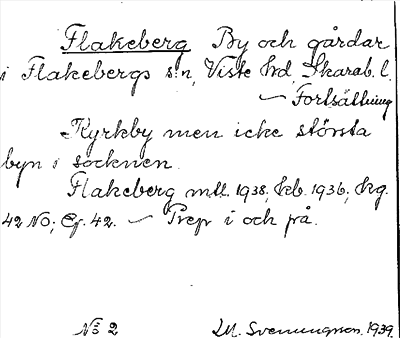 Flakeberg By och gårdar
i Flakebergs sn, Viste hd, Skarab. l.
— Fortsättning
Kyrkby men icke största
byn i socknen.
Flakeberg mtl. 1938, kb. 1936, hg.
42 NO; Ep. 42. — Prep i och på.
No 2 M. Svenungson. 1939.